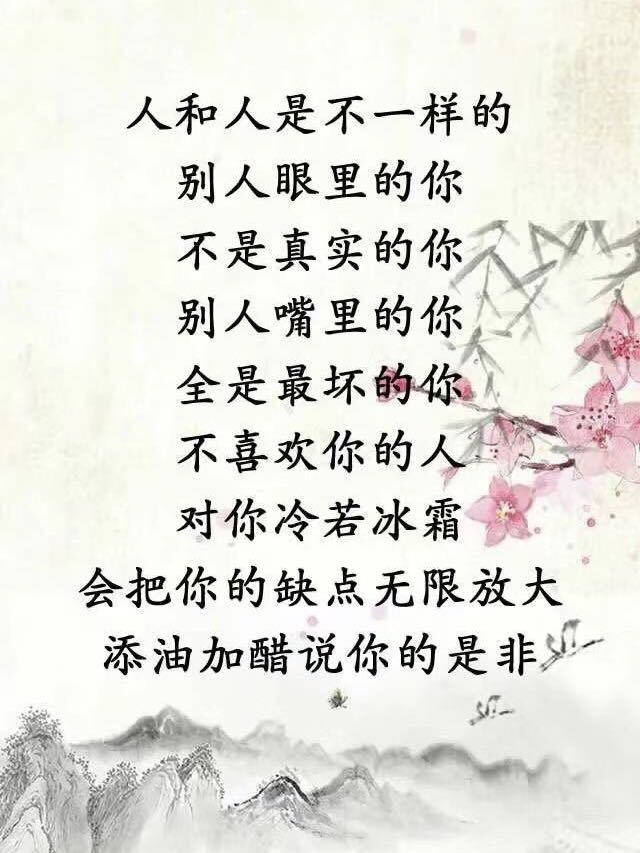 人和人是不一样的
别人眼里的你
不是真实的你
别人嘴里的你
全是最坏的你
不喜欢你的人
对你冷若冰霜
会把你的缺点无限放大
添油加醋说你的是非